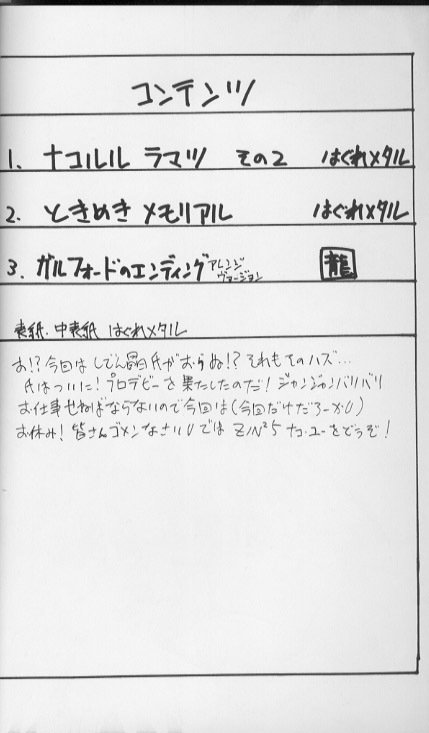 コンテンツ
1. ナコルル ラマツ その2 はぐれメタル
2. ときめきメモリアル はぐれメタル
3. ガルフォードのエンディング アレンジヴァージョン 龍
表紙・中表紙 はぐれメタル
お!?今回はしでん晶氏がおらぬ!?それもそのハズ…
氏はついに!プロデビーを果たしたのだ!ジャンジャンバリバリ
お仕事せねばならないので今回は(今回だけだろーか)
お休み!皆さんゴメンなさい では ナコ・ユーをどうぞ!